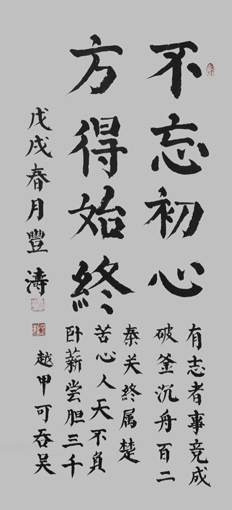 不忘初心
方得始终
有志者事竟成
破釜沉舟百二
秦关终属楚
苦心人天不负
卧薪尝胆三千
越甲可吞吴
戊戌春月豐涛